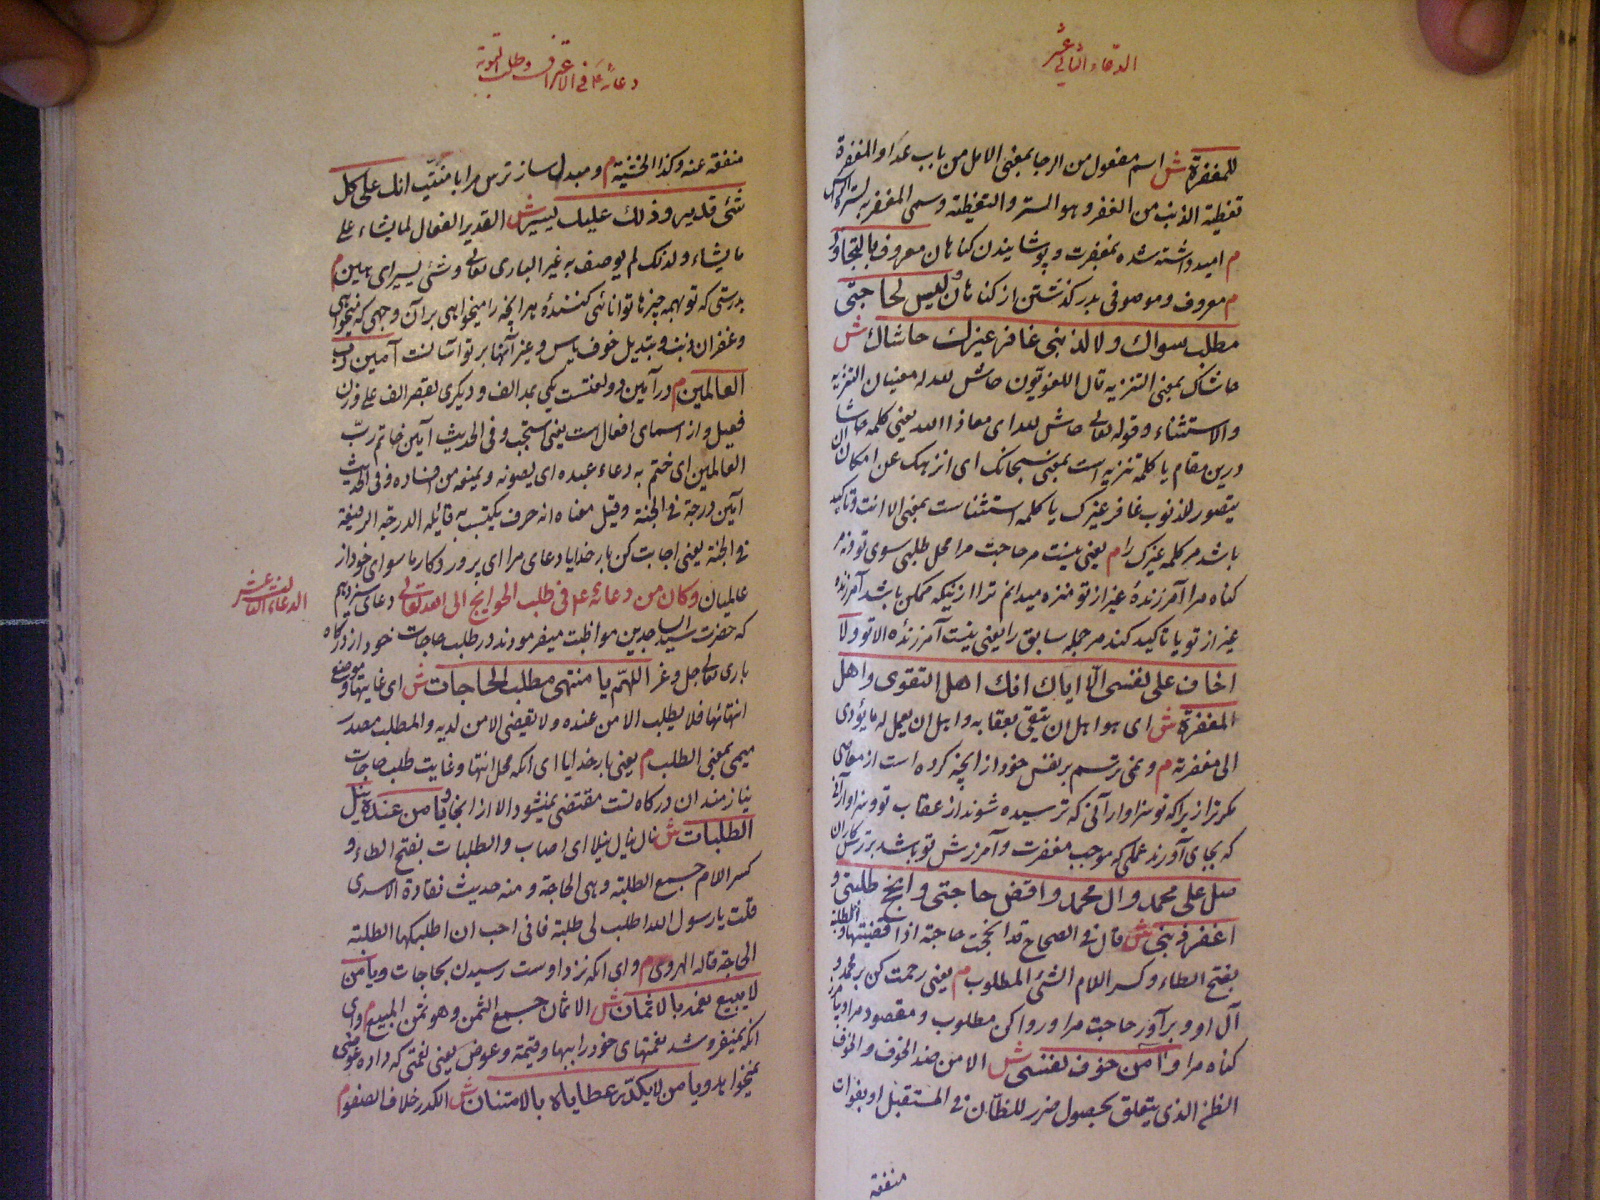 الدعاء الثانی عشر
للمغفرة ش اسم مفعول من الرجا بمعنی الامل من باب عدا و المغفرة
تغطیة الذنب من الغفر و هو الستر و التغطیة و سمی المغفر به لستره الراس
م امید داشته شده بمغفرت و پوشانیدن کناهان معروفا بالتجاوز
م معروف و موصوفی بدر کذشتن از کناهان و لیس لحاجتی
مطلب سواك ولا لذنبی غافر غیرك حاشاك ش
حاشاک بمعنی التنزیه قال اللغویون حاش لله له معنیان التنزیه
و الاستثناء و قوله تعالی حاش لله ای معاذ الله یعنی کلمه حاشا
درین مقام یا کلمه تنزیه است بمعنی سبحانک ای انزهک عن امکان ان
یتصور للذنوب غافر غیرک یا کلمه استثناست بمعنی الا انت و تاکید
باشد مر کلمه غیرک را م یعنی نیست مر حاجت مرا محل طلبی سوی تو و نه مر
کناه مرا آمرزندهٔ غیر از تو منزه میدانم ترا از اینکه ممکن باشد آمرزندهٔ
غیر از تو یا تاکید کند مر جمله سابق را یعنی نیست آمرزندهٔ الا تو ولا
اخاف علی نفسی الّا ایاك انك اهل التقوی و اهل
المغفرة ش ای هو اهل ان یتقی بعقابه و اهل ان یعمل له ما یؤدی
الی مغفرته م و نمی ترسم بر نفس خود از آنچه کرده است از معاصی
مکر ترا زیرا که تو سزاوار آنی که ترسیده شوند از عقاب تو و سزاوار آنی
که بجای آورند عملی که موجب مغفرت و آمرزش تو باشد بر ترسکاران
صل علی محمد و ال محمد و اقض حاجتی و انجح طلبتی و
اغفر ذنبی ش قال فی الصحاح قد انجحت حاجته اذا قضیتها و الطلبة
بفتح الطاء و کسر اللام الشئ المطلوب م یعنی رحمت کن بر محمد و
آل او و بر آور حاجت مرا و روا کن مطلوب و مقصود مرا و بیامرز
کناه مرا و آمن خوف نفسی ش الامن ضد الخوف و الخوف
الظن الذی یتعلق بحصول ضرر للظان فی المستقبل او بفوات
منفقه
دعائه ع فی الاعتراف و طلب التوبة
منفقه عنه و کذا الخشیة م و مبدل ساز ترس مرا بامنیت انك علی کل
شئ قدیر و ذلك علیك یسیر ش القدیر الفعال لما یشاء علی
ما یشاء و لذلک لم یوصف به غیر الباری تعالی و شئ یسیر ای هین م
بدرستی که تو بهمه چیزها توانائی کنندهٔ هر آنچه را میخواهی بر آن وجهی که میخواهی
و غفران ذنب و تبدیل خوف بامن و غیر آنها بر تو آسانست آمین رب
العالمین م در آمین دو لغتست یکی بمد الف و دیکری بقصر الف علی وزن
فعیل و از اسمای افعال است یعنی استجب و فی الحدیث آمین خاتم ربّ
العالمین ای ختم به دعاء عبده ای یصونه و یمنعه من الفساد و فی الحدیث
آمین درجة فی الجنة و قیل معناه انه حرف یکتسب به قائله الدرجة الرفیعة
فی الجنة یعنی اجابت کن بار خدایا دعای مرا ای پروردکار ماسوای خود از
عالمیان و کان من دعائه ع فی طلب الحوایج الی الله تعالی دعای سیزدهم
الدعاء الثالث عشر
که حضرت سید الساجدین مواظبت میفرمودند در طلب حاجات خود از درکاه
باری تعالی جل و عز اللهم یا منتهی مطلب الحاجات ش ای غایتها و موضع
انتهائها فلا یطلب الا من عنده و لا یقضی الا من لدیه و المطلب مصدر
میمی بمعنی الطلب م یعنی بار خدایا ای انکه محل انتها و غایت طلب حاجات
نیازمندان درکاه تست مقتضی نمیشود الا از انجا و یا من عنده نیل
الطلبات ش نال ینال نیلا ای اصاب و الطلبات بفتح الطاء و
کسر اللام جمع الطلبة و هی الحاجة و منه حدیث نقادة الاسدی
قلت یا رسول الله اطلب لی طلبة فانی احب ان اطلبکها الطلبة
الحاجة قاله الهروی م و ای انکه نزد اوست رسیدن بحاجات و یا من
لا یبیع نعمه بالاثمان ش الاثمان جمع الثمن و هو ثمن المبیع م و ای
انکه نمیفروشد نعمتهای خود را ببها و قیمة و عوض یعنی نعمتی که داده عوضی
نمیخواهد و یا من لا یکدّر عطایاه بالامتنان ش الکدر خلاف الصفو م